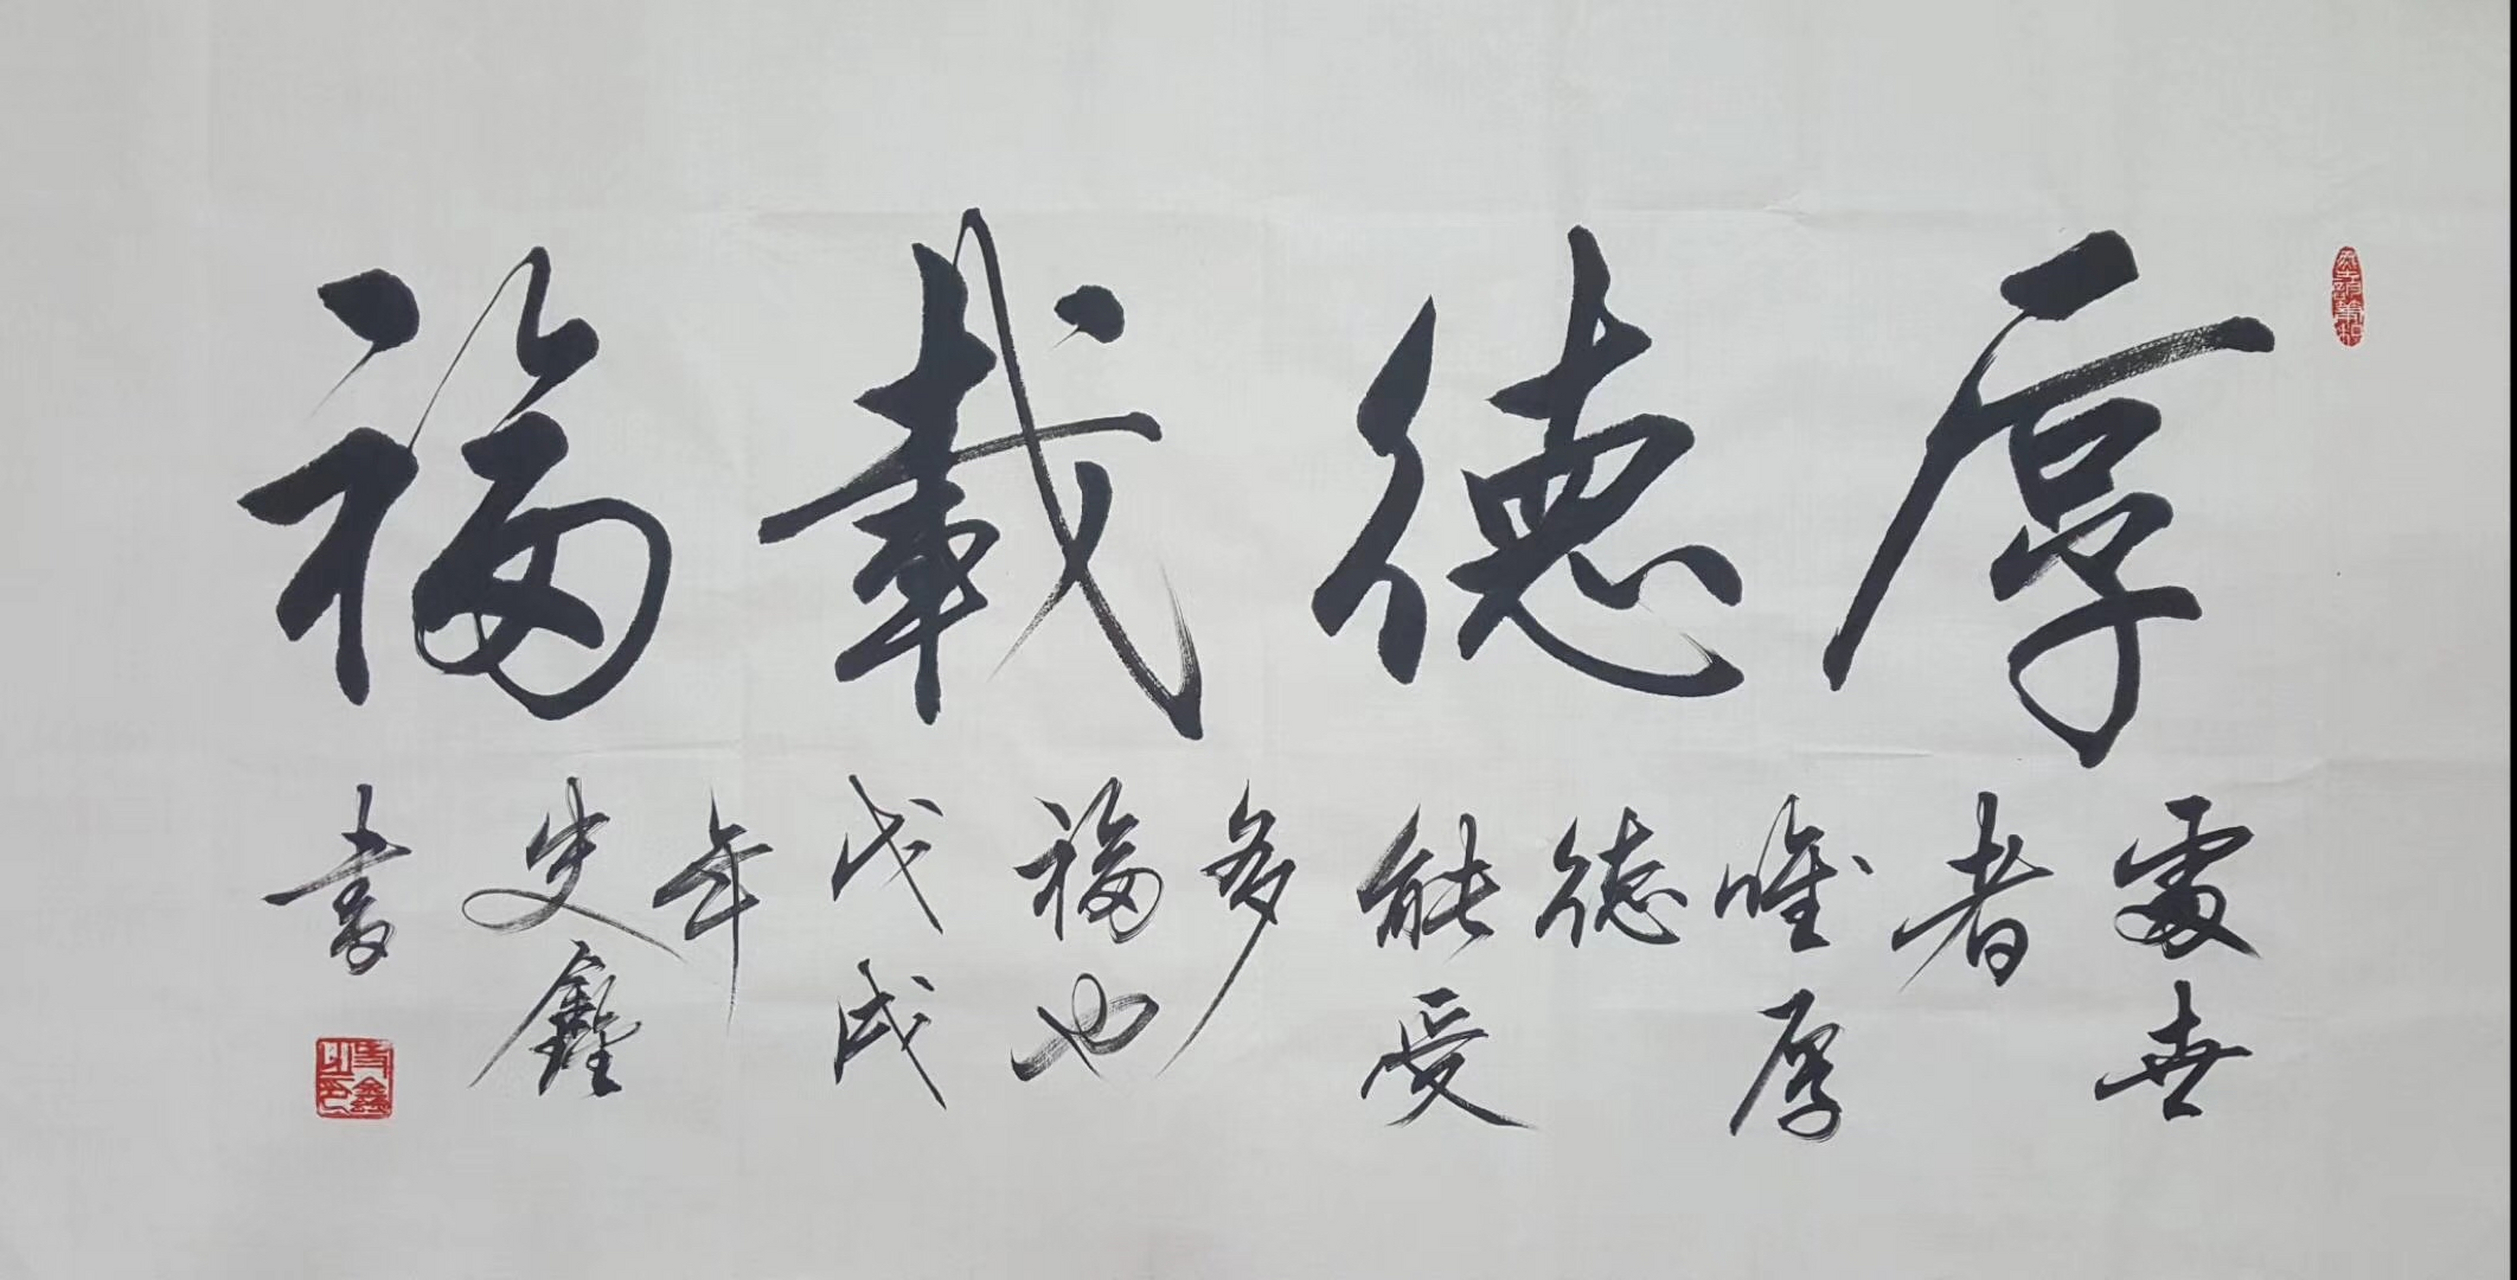 厚德載福
處世
者
唯厚
德
能受
多
福也
戊戌
年
史鑫
書
史鑫之印